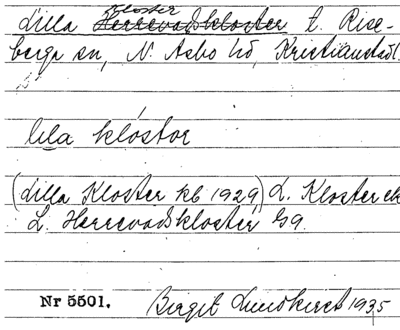 Lilla Kloster Herrevadskloster t. Rise-
berga sn, N. Åsbo hd, Kristianstads l.
lila klostor
(Lilla Kloster kb 1929) L. Kloster ek
L. Herrevadskloster Gg.
Nr 5501. Birgit Lundkvist 1935